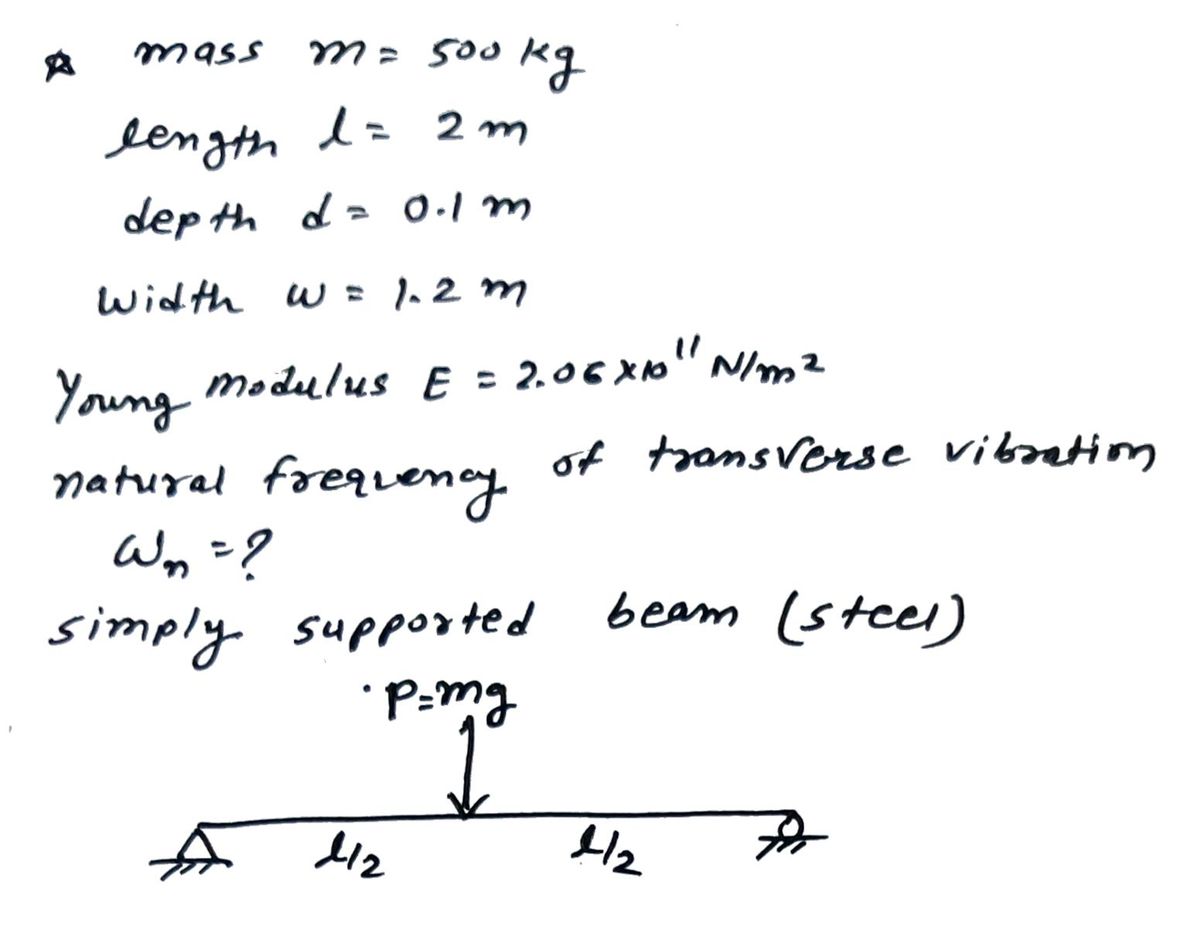 ☆ mass m = 500 kg
length l = 2 m
depth d = 0.1 m
width w = 1.2 m
Young modulus E = 2.06 x10¹¹ N/m²
natural frequency of transverse vibration
ωn = ?
simply supported beam (steel)
P=mg
l/2 l/2